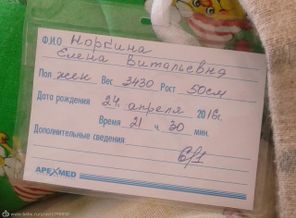 Ф.И.О Норкина
Елена Витальевна
Пол жен Вес 3430 Рост 50см
Дата рождения 24 апреля 2016г.
Время 21 ч 30 мин.
Дополнительные сведения
6/1
APEXMED